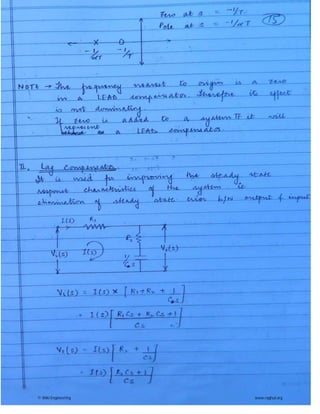 Zero at s = -1/T
Pole at s = -1/αT
15
-1/αT -1/T
NOTE → The frequency nearest to origin is a zero
in a LEAD compensator. Therefore its effect
is not dominating.
If zero is added to a system TF it will
represent
a LEAD compensator
II. Lag Compensator
It is used for improving the steady state
response characteristics of the system ie
elimination of steady state error b/w output & input
I(s) R₁
R₂
V₁(s) I(s) V₂(s)
1/Cs
V₁(s) = I(s) × [R₁+R₂ + 1/Cs]
= I(s) [R₁Cs + R₂Cs + 1 / Cs]
V₂(s) = I(s) [R₂ + 1/Cs]
= I(s) [R₂Cs + 1 / Cs]
www.raghul.org